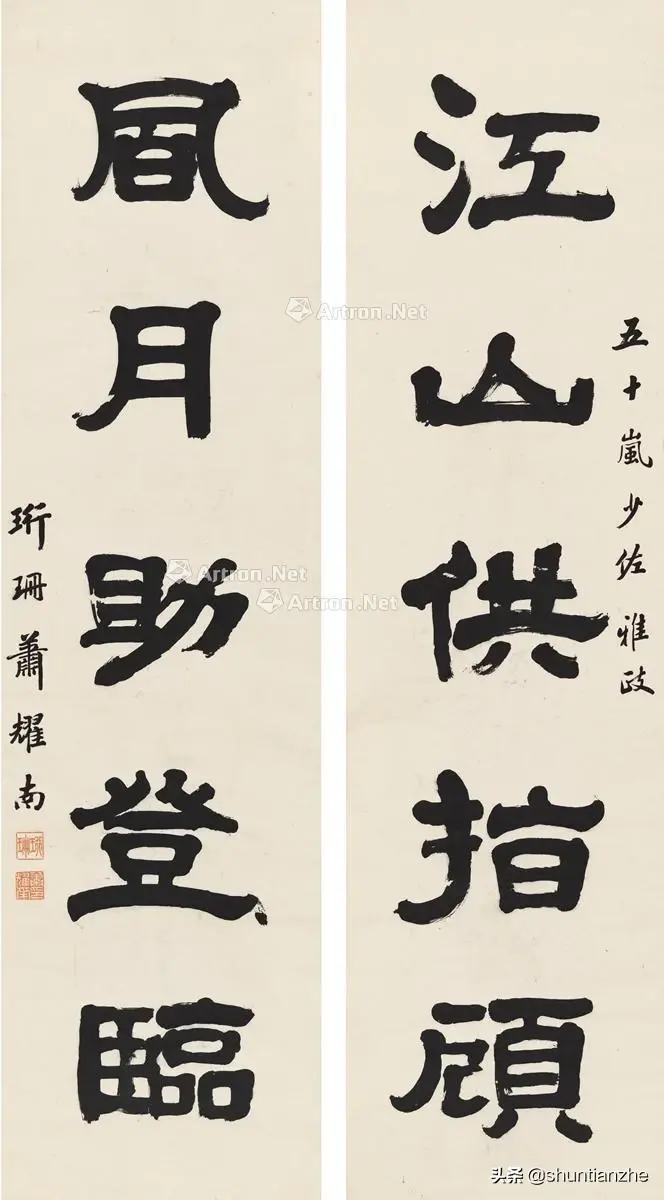 五十嵐少佐雅政
江山供指顧
風月助登臨
珩珊蕭耀南
Artron.Net
Artron.Net
Artron.Net
头条 @shuntianzhe